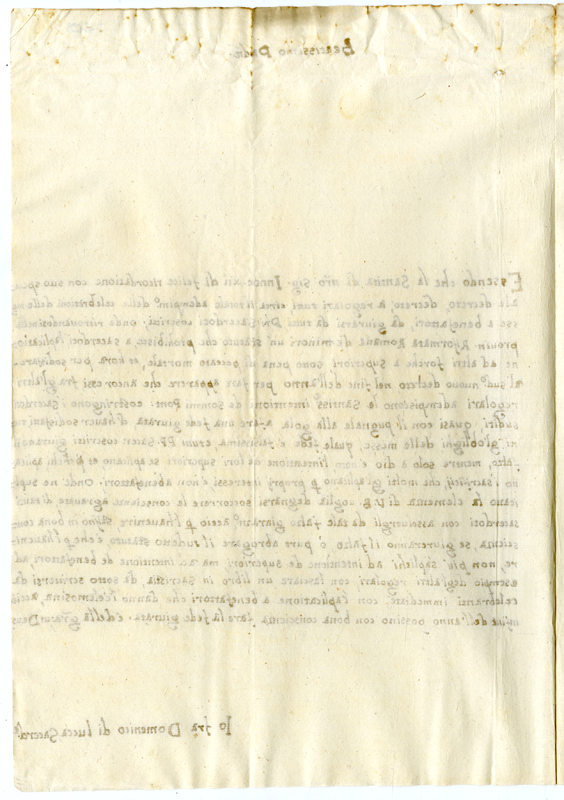 Beatissimo Padre
Essendo che la Santità di nro Sig. Innoc. XII di felice ricordatione con suo speci
ale decreto, à regolari tutti circa il totale adempimto delle celebrationi delle me
sse a benefattori, da giurarsi da tutti PP. Sacerdoti onde ritrovandosi nella
provin Riformata Romana de minori un statuto che prohibisce a sacerdoti l'aplicatio
ne ad altri forche à Superiori sotto pena di peccato mortale, et hora per sodisfare
al sudo nuovo decreto nel fine dell'anno per fare apparere che ancor essi fra gl'altri
regolari adempiscono le Santisse intentioni de sommi Pont: costringono i sacerdoti
sudditi, quasi con il pugnale alla gola à fare una fede giurata d'haver sodisfatti tut
ti gl'oblighi delle messe, quale fede è falsissima, PP. Sacer costritti giurano il
falso, mentre solo à Dio è nota l'intentione da lori superiori se
no i sacrifitij, che molti per proprij interessi e non à benefattori. Onde ne supp
icano la clemenza di V.B. voglia degnarsi soccorrere le conscienze aggravate di tanti
sacerdoti con assolvergli da tale falso giuramto acciò p l'havenire in bona con
scienza, se giureranno il falso ò pure abrogare il sudetto statuto e che p l'haveni
re, non più s'aplichi ad intentione de superiori, ma ad intentione de benefattori ad
esempio degl'altri regolari con lasciare un libro in sacrestia da sotto scriversi da
celebranti immediate, con l'aplicatione a benefattori che danno l'elemosina, acciò
infine dell'anno possino con bona conscienza fare la fede giurata. e della gratia Deus
Io frà Domenico di Lucca Sacerdte